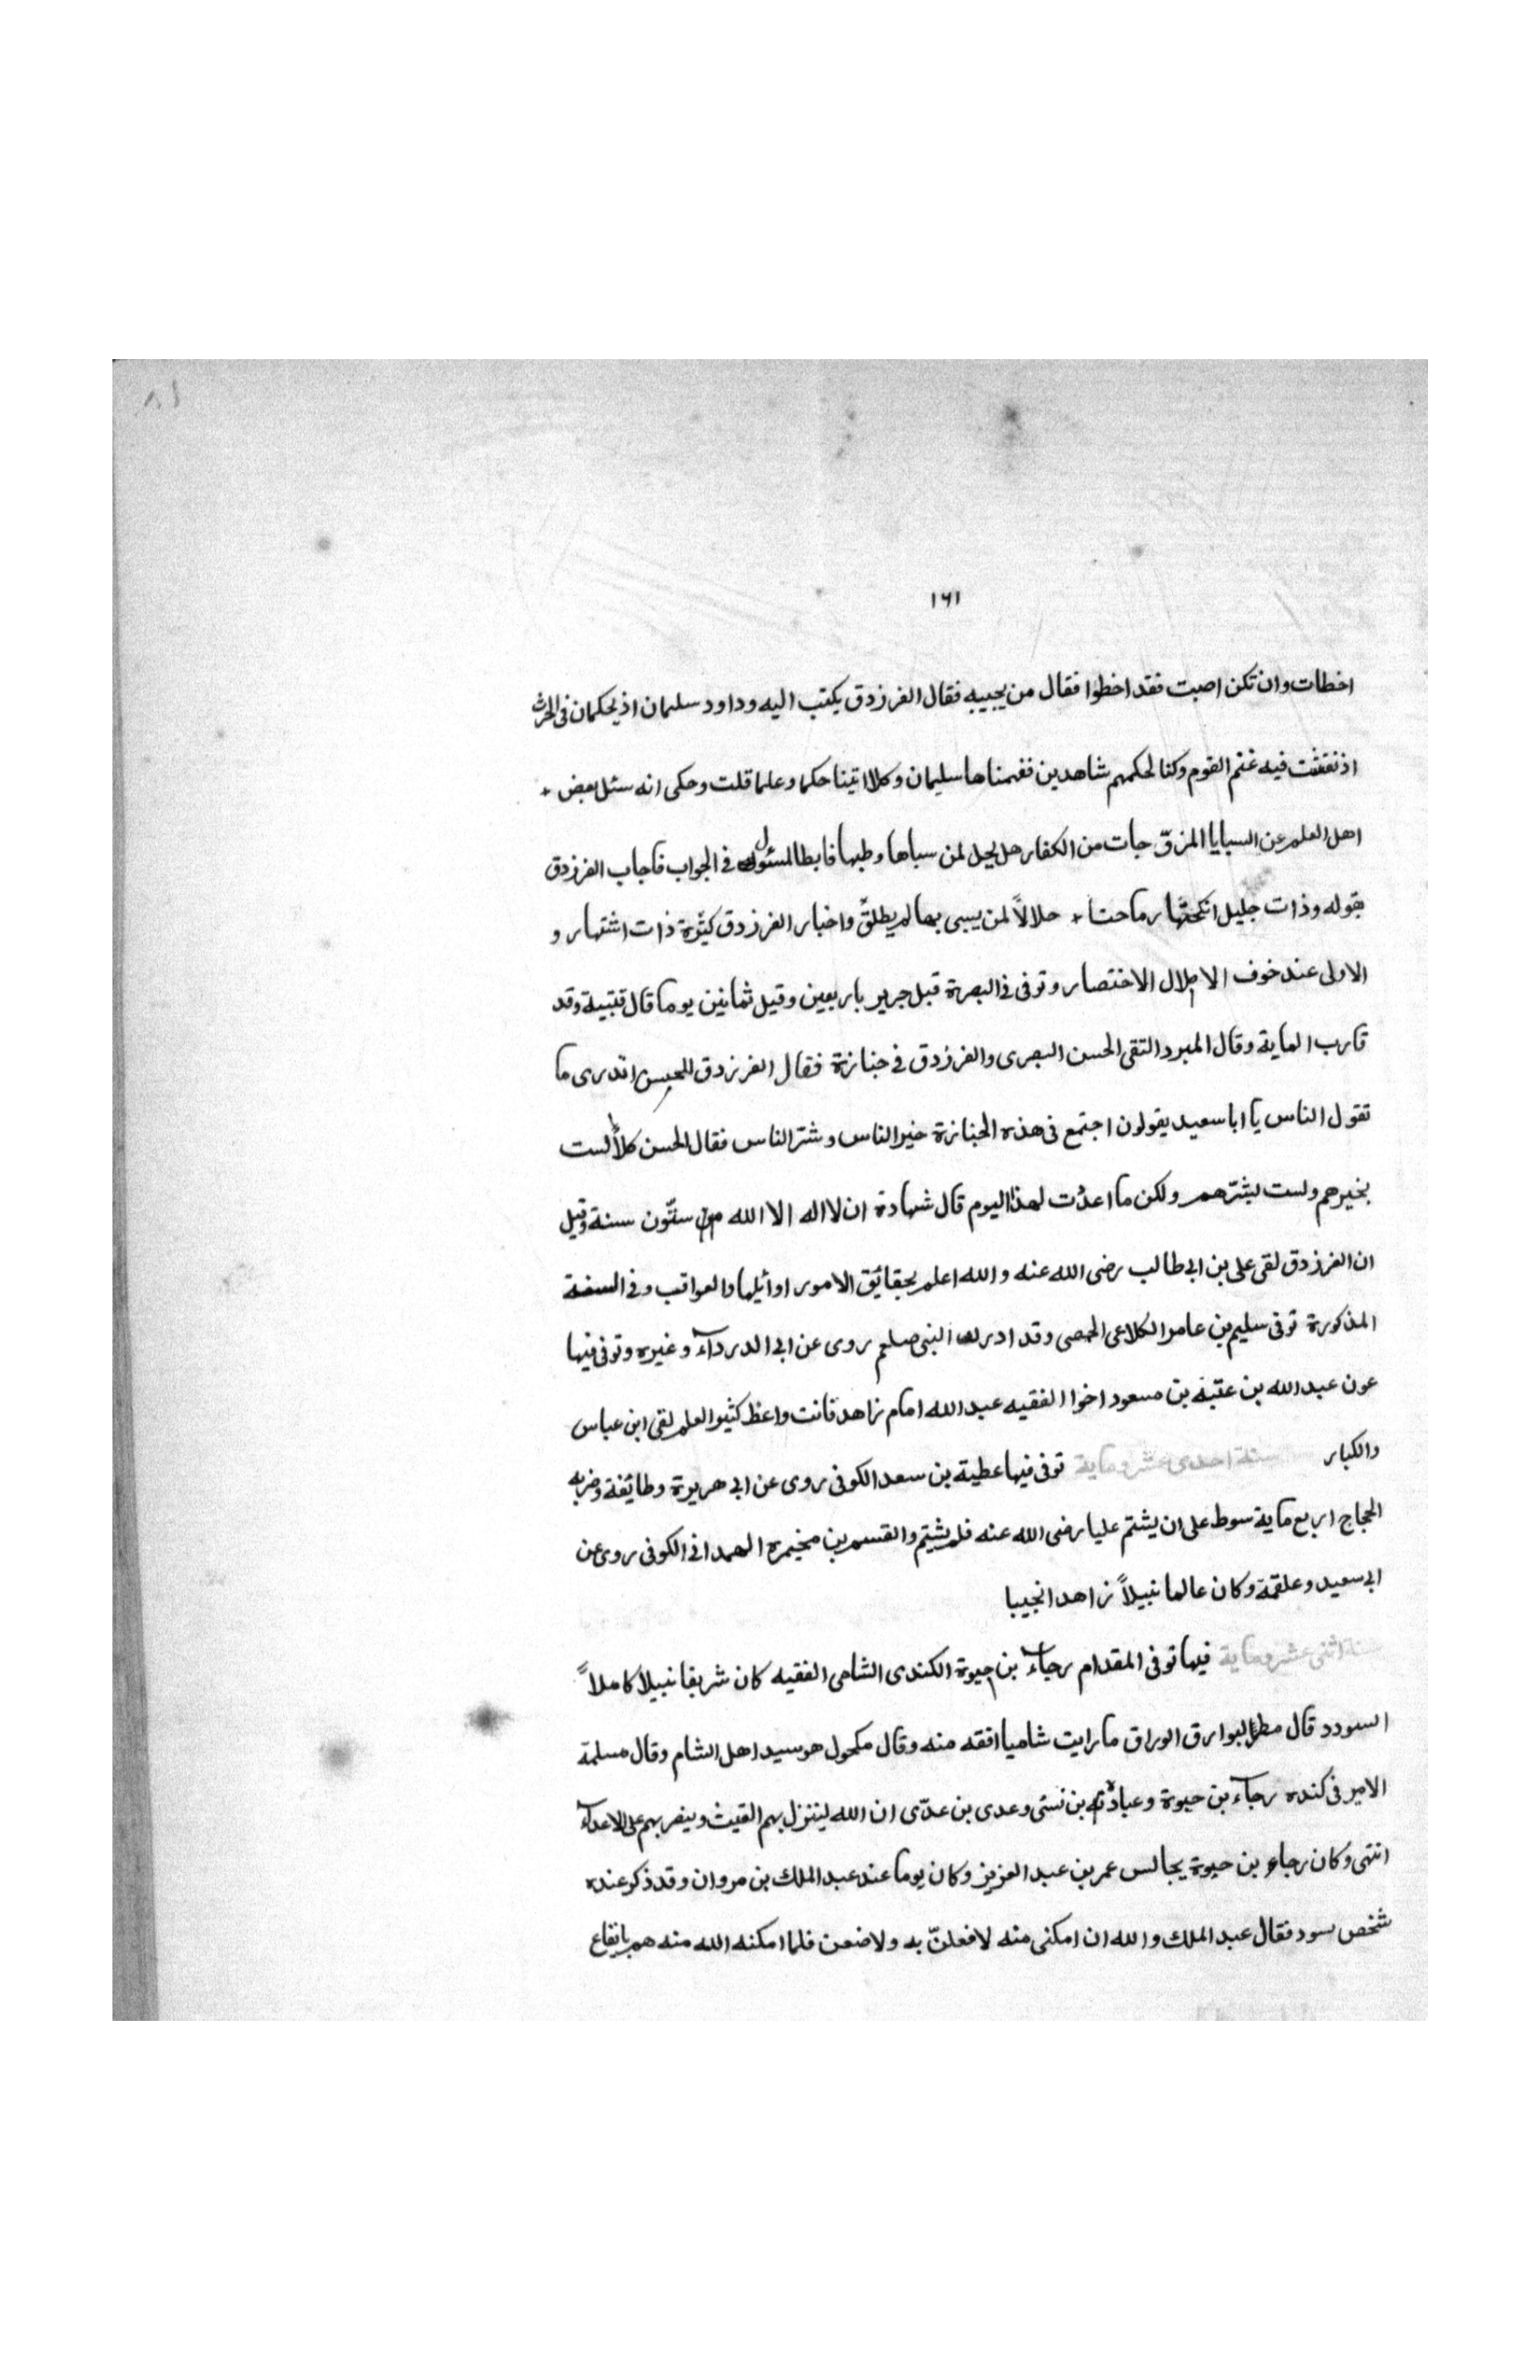 ٨١
١٦١
اخطات وان تكن اصبت فقد اخطوا فقال من يجيبه فقال الفرزدق يكتب اليه وداود سليمان اذ يحكمان فى الحرث
اذ نفشت فيه غنم القوم وكنا لحكمهم شاهدين ففهمناها سليمان وكلا اتينا حكما وعلما قلت وحكى انه سئل بعض
اهل العلم عن السبايا المزوّجات من الكفار هل يحل لمن سباها وطيها فابطا المسئول فى الجواب فاجاب الفرزدق
بقوله وذات حليل انكحتها رماحنا حلالاً لمن يبىى بها لم يطلق واخبار الفرزدق كثيرة ذات اشتهار و
الاولى عند خوف الاملال الاختصار وتوفى فى البصرة قبل جرير باربعين وقيل ثمانين يوما قال قتيبة وقد
قارب الماية وقال المبرد التقى الحسن البصرى والفرزدق فى جنازة فقال الفرزدق للحسن اتدرى ما
تقول الناس يا ابا سعيد يقولون اجتمع فى هذه الجنازة خير الناس وشرّ الناس فقال الحسن كلاّ لست
بخيرهم ولست بشرّهم ولكن ما اعدت لهذا اليوم قال شهادة ان لا اله الا الله من ستّون سنة وقيل
ان الفرزدق لقى على بن ابى طالب رضى الله عنه والله اعلم بحقائق الامور اوائيلها والعواقب وفى السنة
المذكورة توفى سليم بن عامر الكلاعى الحمصى وقد ادرك النبى صلعم روى عن ابى الدرداء وغيره وتوفى فيها
عون عبد الله بن عتبة بن مسعود اخوا الفقيه عبد الله امام زاهد قانت واعظ كثير العلم لقى ابن عباس
والكبار سنة احدى عشر وماية توفى فيها عطية بن سعد الكوفى روى عن ابى هريرة وطائفة وضربه
الحجاج اربع ماية سوط على ان يشتم عليا رضى الله عنه فلم يشتم والقسم بن مخيمره الهمدانى الكوفى روى عن
ابى سعيد وعلقمة وكان عالما نبيلاً زاهدا نجيبا
سنة اثنى عشر وماية فيها توفى المقدام رجاء بن حيوة الكندى الشامى الفقيه كان شريفا نبيلا كاملاً
السودد قال مطر الوراق ما رايت شاميا افقه منه وقال مكحول هو سيد اهل الشام وقال مسلمة
الامير فى كنده رجاء بن حيوة وعبادة بن نسّى وعدى بن عدّى ان الله لينزل بهم الغيث وينصر بهم على الاعداء
انتهى وكان رجاء بن حيوة يجالس عمر بن عبد العزيز وكان يوما عند عبد الملك بن مروان وقد ذكر عنده
شخص بسود فقال عبد الملك والله ان امكنى منه لافعلنّ به ولاضعن فلما امكنه الله منه هم بايقاع